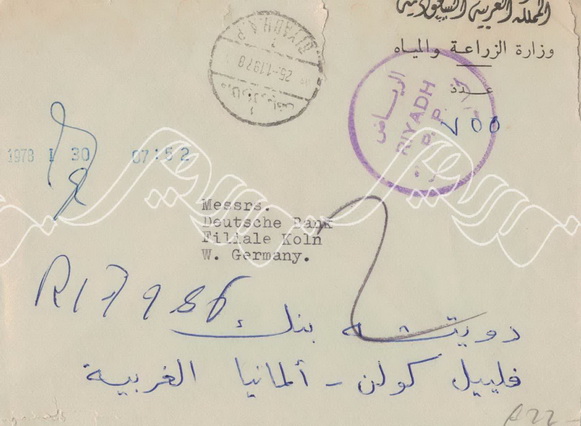 المملكة العربية السعودية
وزارة الزراعة والمياه
جدة
RIYADH
25-1-1978
الرياض
RIYADH
P. P.
700
1978 1 30 07 52
Messrs.
Deutsche Bank
Filiale Koln
W. Germany.
R17986
دويتشه بنك
فلييل كولن - ألمانيا الغربية
R22